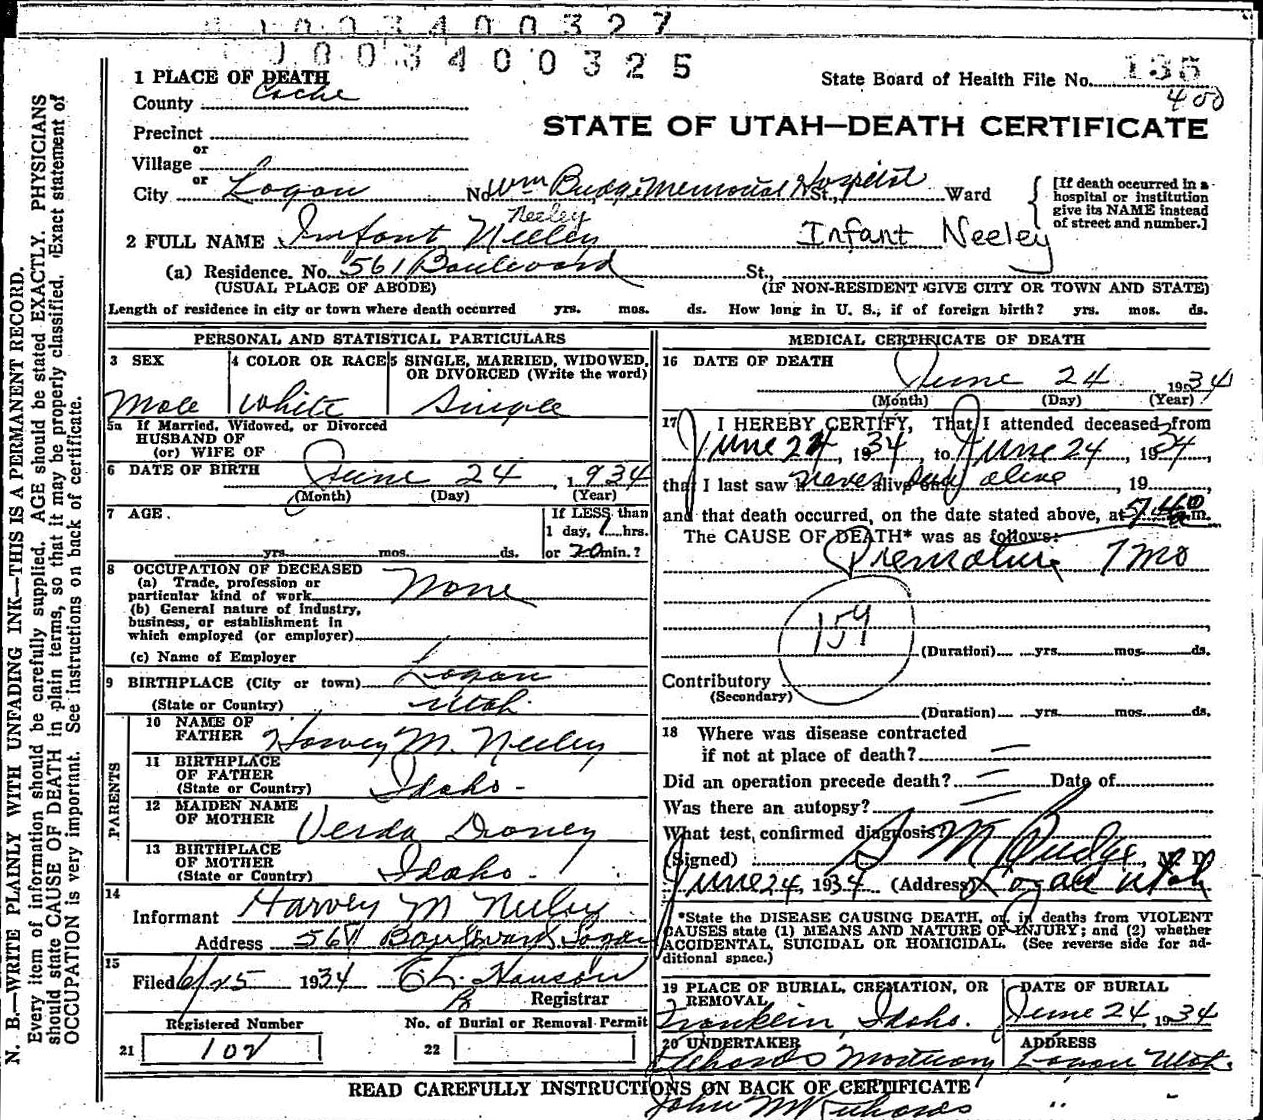 1003400327
1003400325
State Board of Health File No. 135
400
1 PLACE OF DEATH
County Cache
STATE OF UTAH—DEATH CERTIFICATE
Precinct
or
Village
or
City Logan No. Wm Budge Memorial Hospital St., Ward
[If death occurred in a hospital or institution give its NAME instead of street and number.]
Neeley
2 FULL NAME Infant Neeley Infant Neeley
(a) Residence. No. 561 Boulevard St.,
(USUAL PLACE OF ABODE) (IF NON-RESIDENT GIVE CITY OR TOWN AND STATE)
Length of residence in city or town where death occurred yrs. mos. ds. How long in U. S., if of foreign birth? yrs. mos. ds.
PERSONAL AND STATISTICAL PARTICULARS
3 SEX
Male
4 COLOR OR RACE
White
5 SINGLE, MARRIED, WIDOWED,
OR DIVORCED (Write the word)
Single
5a If Married, Widowed, or Divorced
HUSBAND OF
(or) WIFE OF
6 DATE OF BIRTH June 24, 1934
(Month) (Day) (Year)
7 AGE
yrs. mos. ds.
If LESS than
1 day, hrs.
or 20 min.?
8 OCCUPATION OF DECEASED
(a) Trade, profession or
particular kind of work None
(b) General nature of industry,
business, or establishment in
which employed (or employer)
(c) Name of Employer
9 BIRTHPLACE (City or town) Logan
(State or Country) Utah
PARENTS
10 NAME OF
FATHER Harvey M. Neeley
11 BIRTHPLACE
OF FATHER
(State or Country) Idaho -
12 MAIDEN NAME
OF MOTHER Verda Droney
13 BIRTHPLACE
OF MOTHER
(State or Country) Idaho -
14
Informant Harvey M Neeley
Address 561 Boulevard Logan
15
Filed 6/25 1934 Hanson
Registrar
Registered Number No. of Burial or Removal Permit
21 102 22
MEDICAL CERTIFICATE OF DEATH
16 DATE OF DEATH
June 24 1934
(Month) (Day) (Year)
17 I HEREBY CERTIFY, That I attended deceased from
June 24, 1934, to June 24, 1934,
that I last saw h never alive on alive, 19
and that death occurred, on the date stated above, at m.
The CAUSE OF DEATH* was as follows:
Premature 7 Mo
159
(Duration) yrs. mos. ds.
Contributory
(Secondary)
(Duration) yrs. mos. ds.
18 Where was disease contracted
if not at place of death? —
Did an operation precede death? — Date of
Was there an autopsy? —
What test confirmed diagnosis?
(Signed) S M Budge, M. D.
June 24, 1934 (Address) Logan Utah
*State the DISEASE CAUSING DEATH, or, in deaths from VIOLENT
CAUSES state (1) MEANS AND NATURE OF INJURY; and (2) whether
ACCIDENTAL, SUICIDAL OR HOMICIDAL. (See reverse side for ad-
ditional space.)
19 PLACE OF BURIAL, CREMATION, OR
REMOVAL
Franklin, Idaho.
DATE OF BURIAL
June 24, 1934
20 UNDERTAKER
Richards Mortuary
ADDRESS
Logan Utah.
READ CAREFULLY INSTRUCTIONS ON BACK OF CERTIFICATE
John M Richards
N. B.—WRITE PLAINLY WITH UNFADING INK—THIS IS A PERMANENT RECORD.
Every item of information should be carefully supplied. AGE should be stated EXACTLY. PHYSICIANS
should state CAUSE OF DEATH in plain terms, so that it may be properly classified. Exact statement of
OCCUPATION is very important. See instructions on back of certificate.